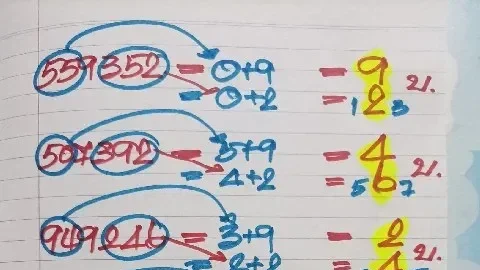 559352 = 0+9 = 9
= 0+2 = 1 2 3 21.
507392 = 5+9 = 4
= 4+2 = 5 6 7 21.
949246 = 3+9 = 2
= 2+2 = 4 21.